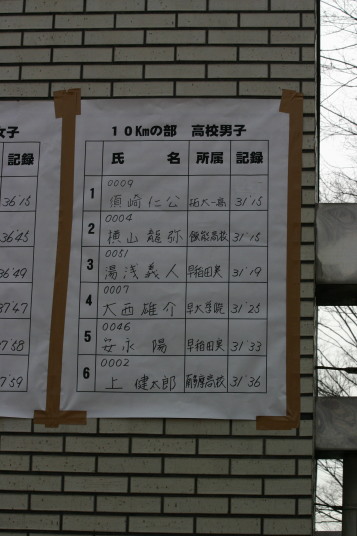 女子
記録
36'15
36'45
36'49
37'47
37'58
37'59
10Kmの部 高校男子
氏 名 所属 記録
1 0009 須崎仁公 拓大一高 31'15
2 0004 横山龍弥 飯能高校 31'15
3 0051 湯浅義人 早稲田実 31'19
4 0007 大西雄介 早大学院 31'25
5 0046 安永陽 早稲田実 31'33
6 0002 上健太郎 高校 31'36